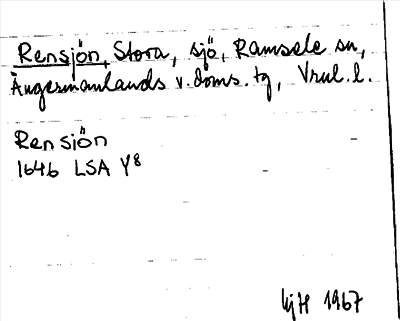 Rensjön, Stora, sjö, Ramsele sn,
Ångermanlands v. doms. tg, Vrnl. l.
Rensjön
1646 LSA Y8
HjH 1967